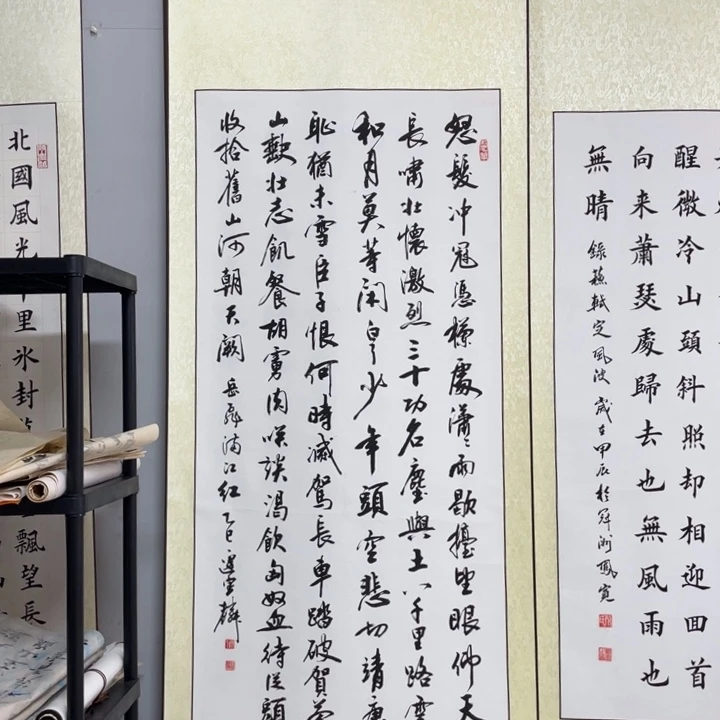 醒微冷山頭斜照却相迎回首
向来蕭瑟處歸去也無風雨也
無晴 錄蘇軾定風波 歲在甲辰於
怒髮冲冠憑欄處瀟〻雨歇擡望眼仰天
長嘯壯懷激烈三十功名塵與土八千里路雲
和月莫等閑白了少年頭空悲切靖康
耻猶未雪臣子恨何時滅駕長車踏破賀蘭
山壯志飢餐胡虜肉笑談渴飲匈奴血待從頭
收拾舊山河朝天闕 岳飛滿江紅 乙巳
北國風光千里氷封 飄望長